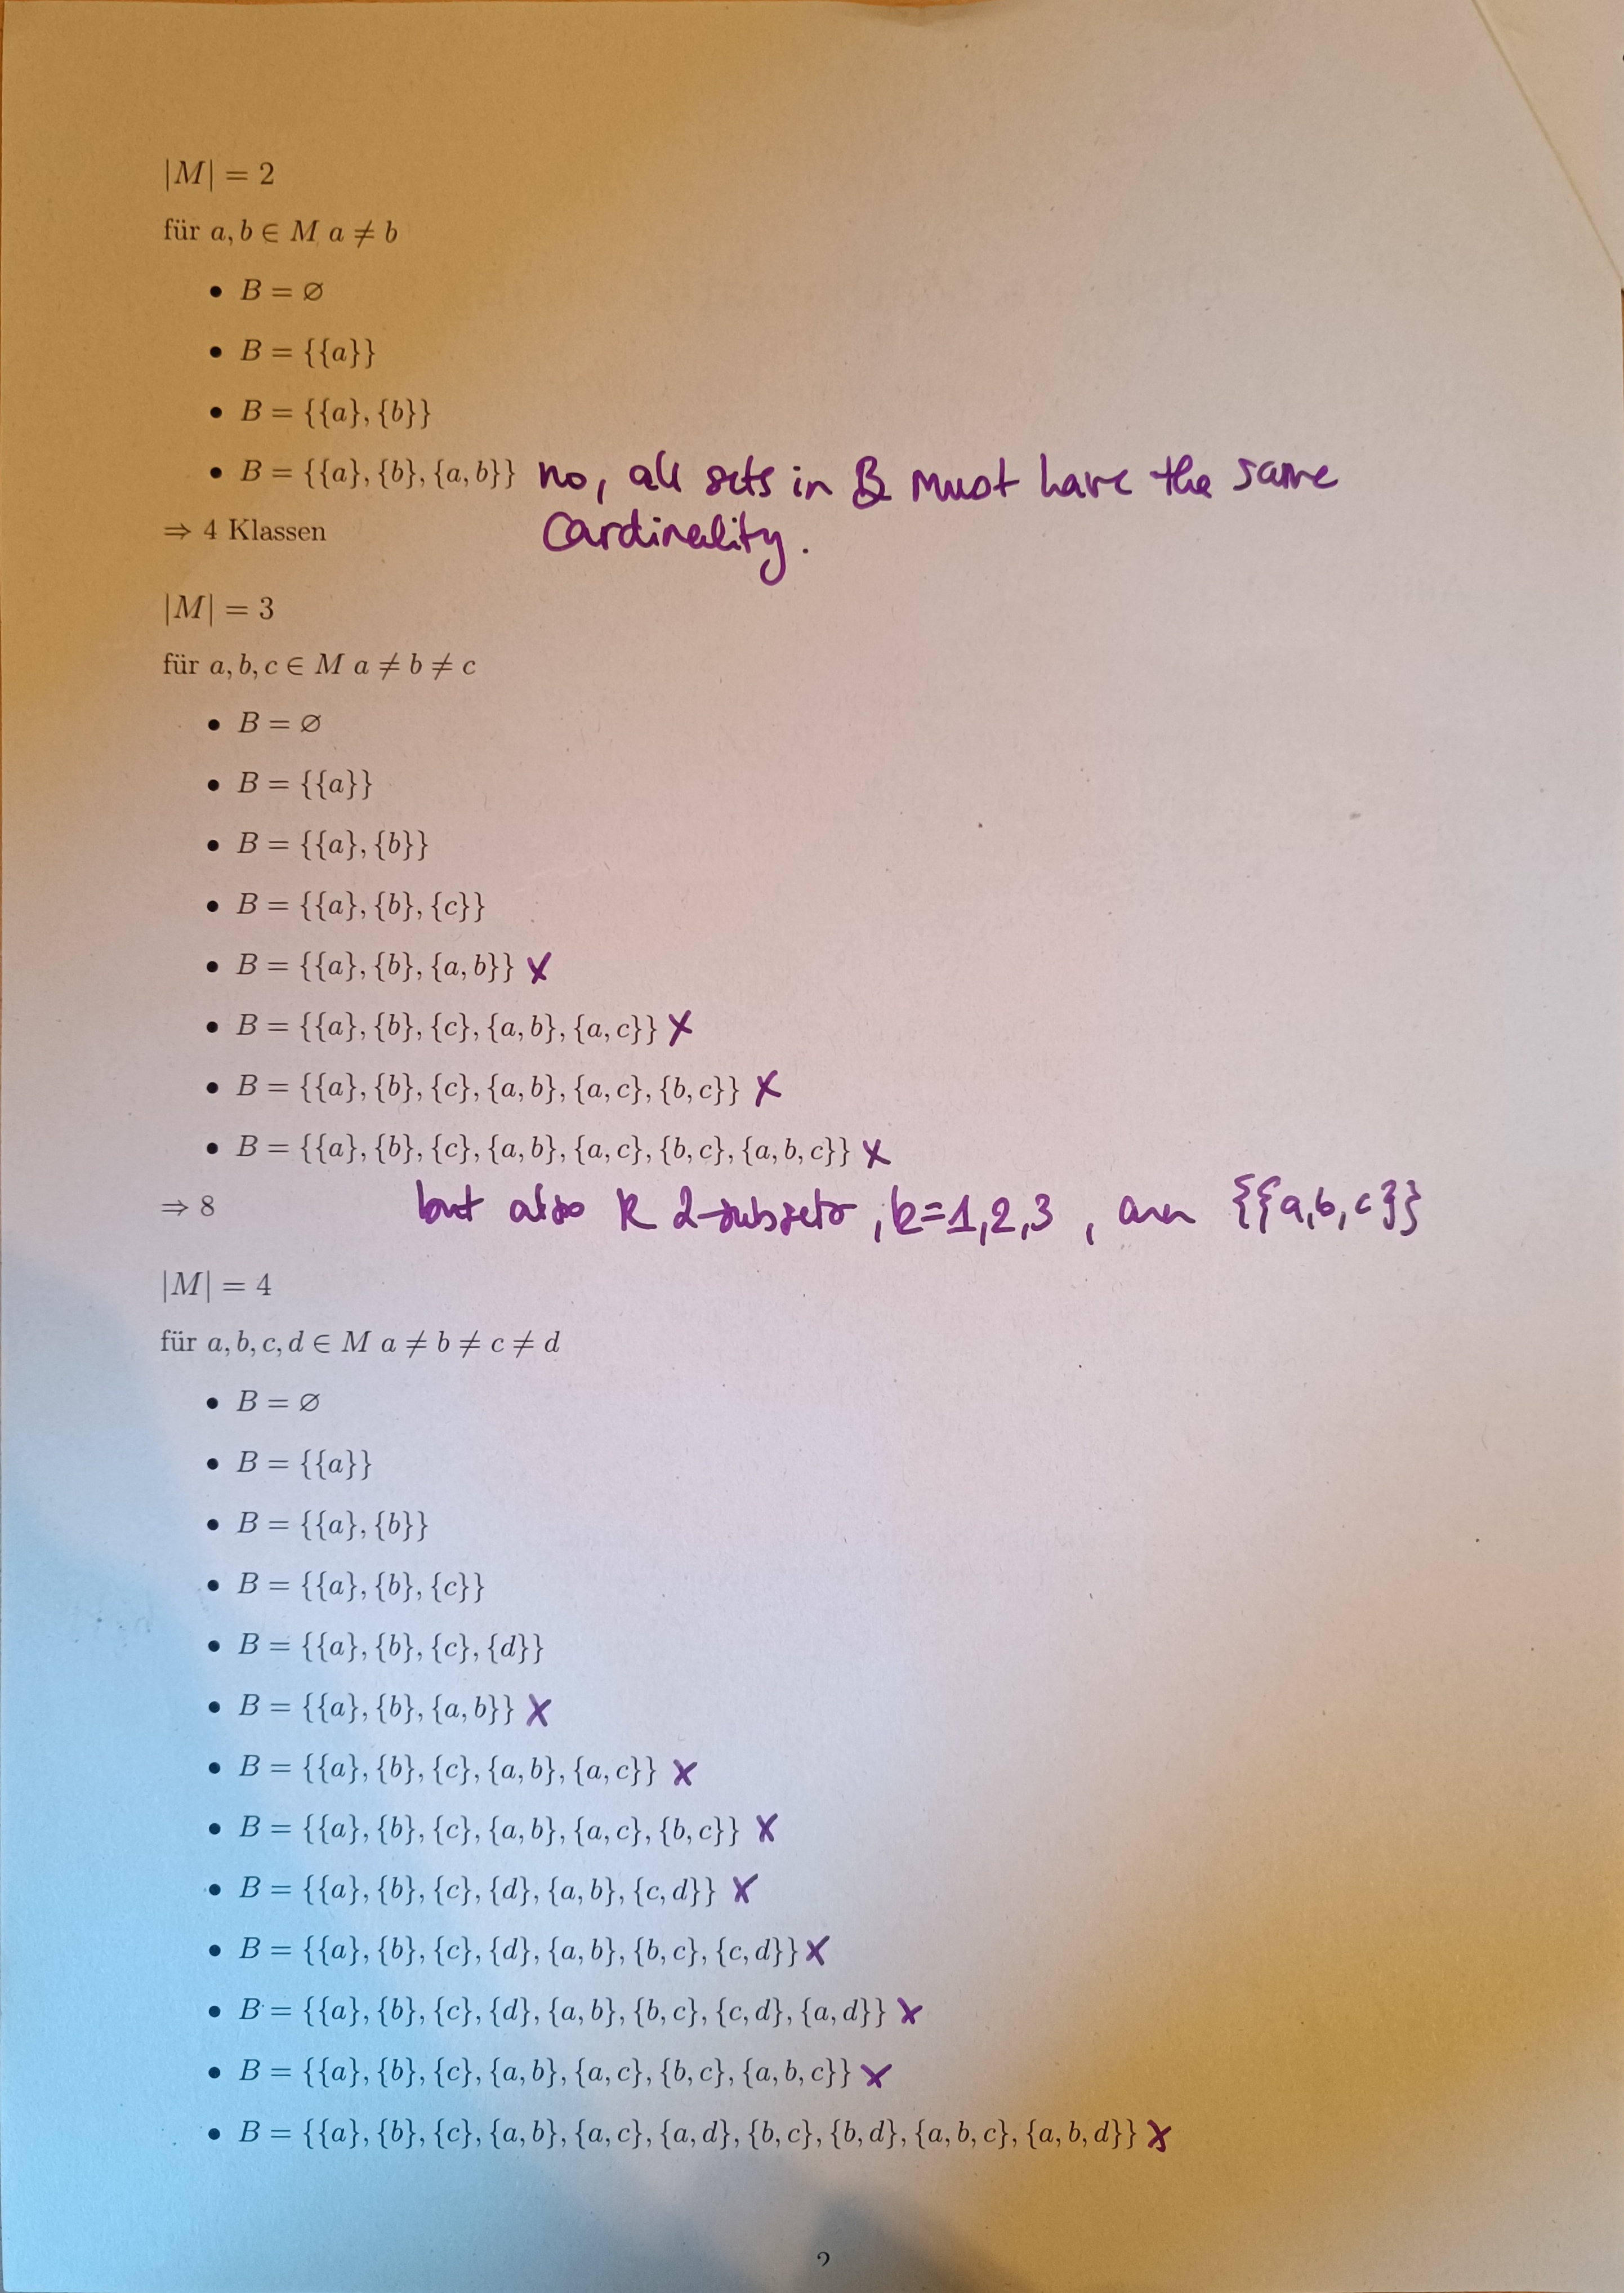 |M| = 2
für a, b ∈ M a ≠ b
• B = ∅
• B = {{a}}
• B = {{a}, {b}}
• B = {{a}, {b}, {a, b}} no, all sets in B must have the same
⇒ 4 Klassen cardinality.
|M| = 3
für a, b, c ∈ M a ≠ b ≠ c
• B = ∅
• B = {{a}}
• B = {{a}, {b}}
• B = {{a}, {b}, {c}}
• B = {{a}, {b}, {a, b}} X
• B = {{a}, {b}, {c}, {a, b}, {a, c}} X
• B = {{a}, {b}, {c}, {a, b}, {a, c}, {b, c}} X
• B = {{a}, {b}, {c}, {a, b}, {a, c}, {b, c}, {a, b, c}} X
⇒ 8 but also k 2-subsets, k=1,2,3, {{a,b,c}}
|M| = 4
für a, b, c, d ∈ M a ≠ b ≠ c ≠ d
• B = ∅
• B = {{a}}
• B = {{a}, {b}}
• B = {{a}, {b}, {c}}
• B = {{a}, {b}, {c}, {d}}
• B = {{a}, {b}, {a, b}} X
• B = {{a}, {b}, {c}, {a, b}, {a, c}} X
• B = {{a}, {b}, {c}, {a, b}, {a, c}, {b, c}} X
• B = {{a}, {b}, {c}, {d}, {a, b}, {c, d}} X
• B = {{a}, {b}, {c}, {d}, {a, b}, {b, c}, {c, d}} X
• B = {{a}, {b}, {c}, {d}, {a, b}, {b, c}, {c, d}, {a, d}} X
• B = {{a}, {b}, {c}, {a, b}, {a, c}, {b, c}, {a, b, c}} X
• B = {{a}, {b}, {c}, {a, b}, {a, c}, {a, d}, {b, c}, {b, d}, {a, b, c}, {a, b, d}} X
2